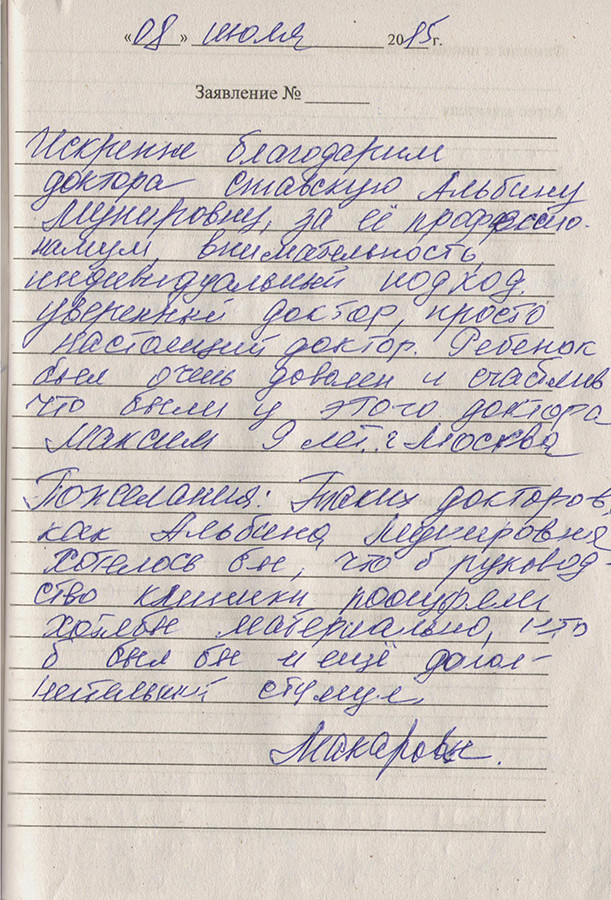 «08» июля 2015г.
Заявление №
Искренне благодарим
доктора Ставскую Альбину
Мунировну, за её професио-
нализм, внимательность,
индивидуальный подход.
уверенный доктор, просто
настоящий доктор. Ребенок
был очень доволен и счастлив
что были у этого доктора
Максим 9 лет. г Москва
Пожелания: Таких докторов,
как Альбина Мунировна
хотелось бы, что б руковод-
ство клиники поощряли
хотябы материально, что
б был бы и ещё допол-
нительный стимул.
Макаровы.